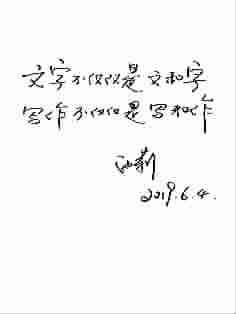 文字不仅仅是文和字
写作不仅仅是写和作
2019.6.4.